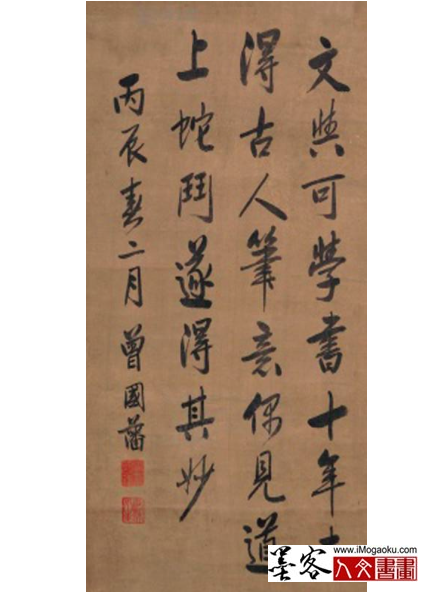 文與可學書十年
得古人筆意偶見道
上蛇鬥遂得其妙
丙辰春二月曾國藩
墨客
www.iMogaoku.com
人文書畫